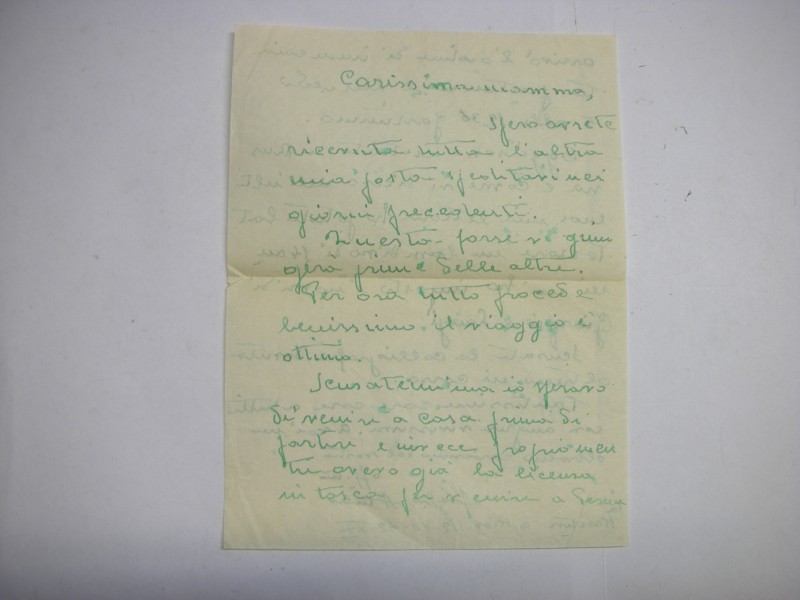 Carissima mamma,
spero avrete
ricevuta tutta l'altra
mia posta speditavi nei
giorni precedenti.
Questa forse vi giun
gerà prima delle altre.
Per ora tutto procede
benissimo il viaggio è
ottimo.
Scusatemi ma io speravo
di venire a casa prima di
partire e invece propriamen
te avevo già la licenza
in tasca per venire a